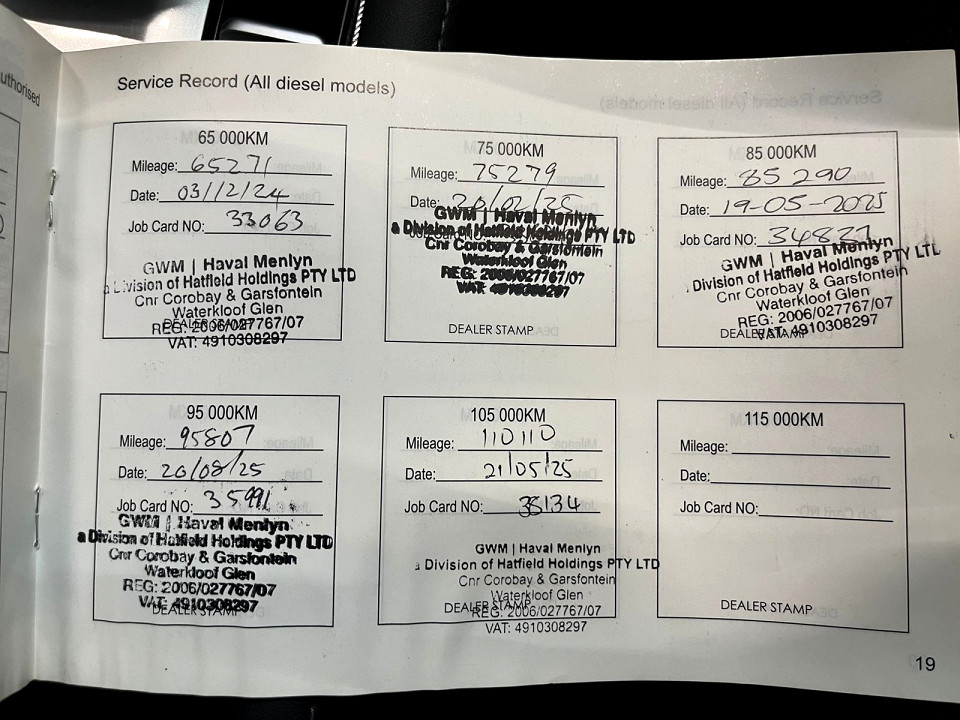 uthorised
Service Record (All diesel models)
65 000KM
Mileage: 65271
Date: 03/12/24
Job Card NO: 33063
GWM | Haval Menlyn
a Division of Hatfield Holdings PTY LTD
Cnr Corobay & Garsfontein
Waterkloof Glen
REG: 2006/027767/07
DEALER STAMP
VAT: 4910308297
75 000KM
Mileage: 75279
Date: 20/02/25
GWM | Haval Menlyn
a Division of Hatfield Holdings PTY LTD
Cnr Corobay & Garsfontein
Waterkloof Glen
REG: 2006/027767/07
VAT: 4910308297
DEALER STAMP
85 000KM
Mileage: 85 290
Date: 19-05-2025
Job Card NO: 34827
GWM | Haval Menlyn
a Division of Hatfield Holdings PTY LTD
Cnr Corobay & Garsfontein
Waterkloof Glen
REG: 2006/027767/07
DEALER STAMP
VAT: 4910308297
95 000KM
Mileage: 95807
Date: 20/08/25
Job Card NO:
GWM | Haval Menlyn
a Division of Hatfield Holdings PTY LTD
Cnr Corobay & Garsfontein
Waterkloof Glen
REG: 2006/027767/07
VAT: 4910308297
DEALER STAMP
105 000KM
Mileage: 110110
Date: 21/05/25
Job Card NO: 35134
GWM | Haval Menlyn
a Division of Hatfield Holdings PTY LTD
Cnr Corobay & Garsfontein
Waterkloof Glen
DEALER STAMP
REG: 2006/027767/07
VAT: 4910308297
115 000KM
Mileage:
Date:
Job Card NO:
DEALER STAMP
19